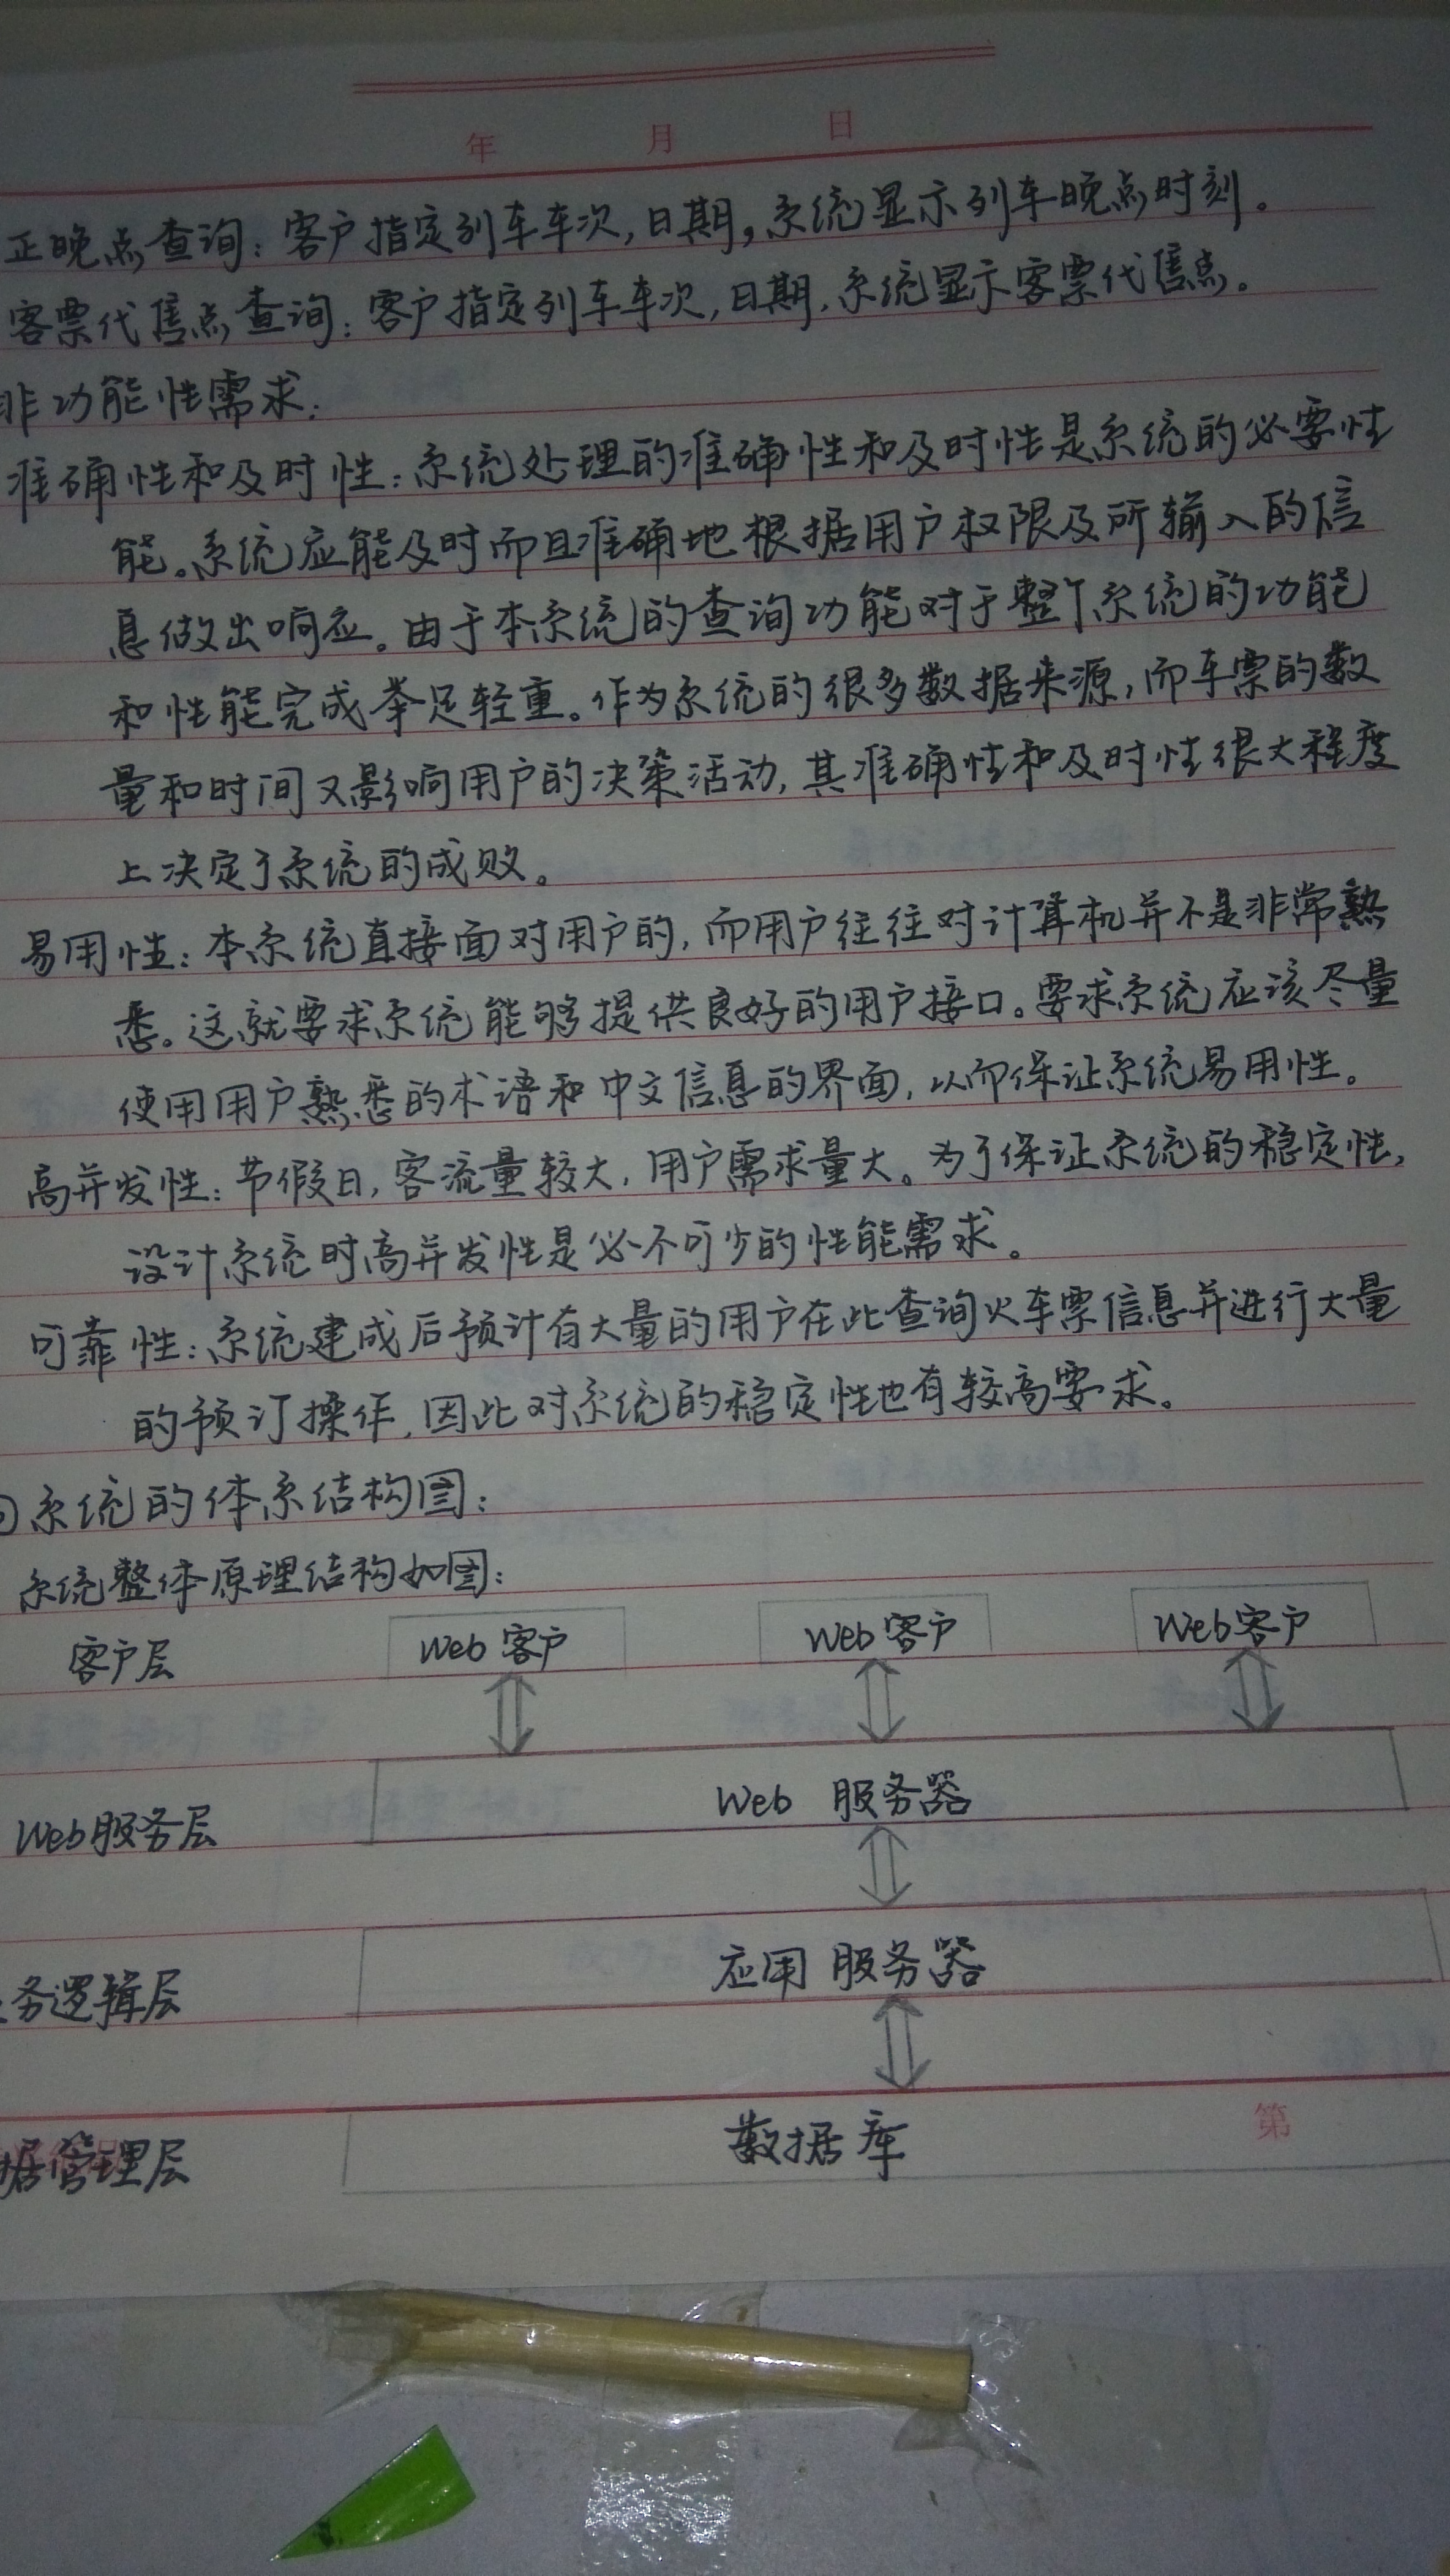 年 月 日
正晚点查询：客户指定列车车次,日期,系统显示列车晚点时刻。
客票代售点查询：客户指定列车车次,日期,系统显示客票代售点。
非功能性需求：
准确性和及时性：系统处理的准确性和及时性是系统的必要性
能。系统应能及时而且准确地根据用户权限及所输入的信
息做出响应。由于本系统的查询功能对于整个系统的功能
和性能完成举足轻重。作为系统的很多数据来源,而车票的数
量和时间又影响用户的决策活动,其准确性和及时性很大程度
上决定了系统的成败。
易用性：本系统直接面对用户的,而用户往往对计算机并不是非常熟
悉。这就要求系统能够提供良好的用户接口。要求系统应该尽量
使用用户熟悉的术语和中文信息的界面,从而保证系统易用性。
高并发性：节假日,客流量较大,用户需求量大。为了保证系统的稳定性,
设计系统时高并发性是必不可少的性能需求。
可靠性：系统建成后预计有大量的用户在此查询火车票信息并进行大量
的预订操作,因此对系统的稳定性也有较高要求。
系统的体系结构图：
系统整体原理结构如图：
客户层 Web客户 Web客户 Web客户
Web服务层 Web 服务器
务逻辑层 应用服务器
据管理层 数据库 第